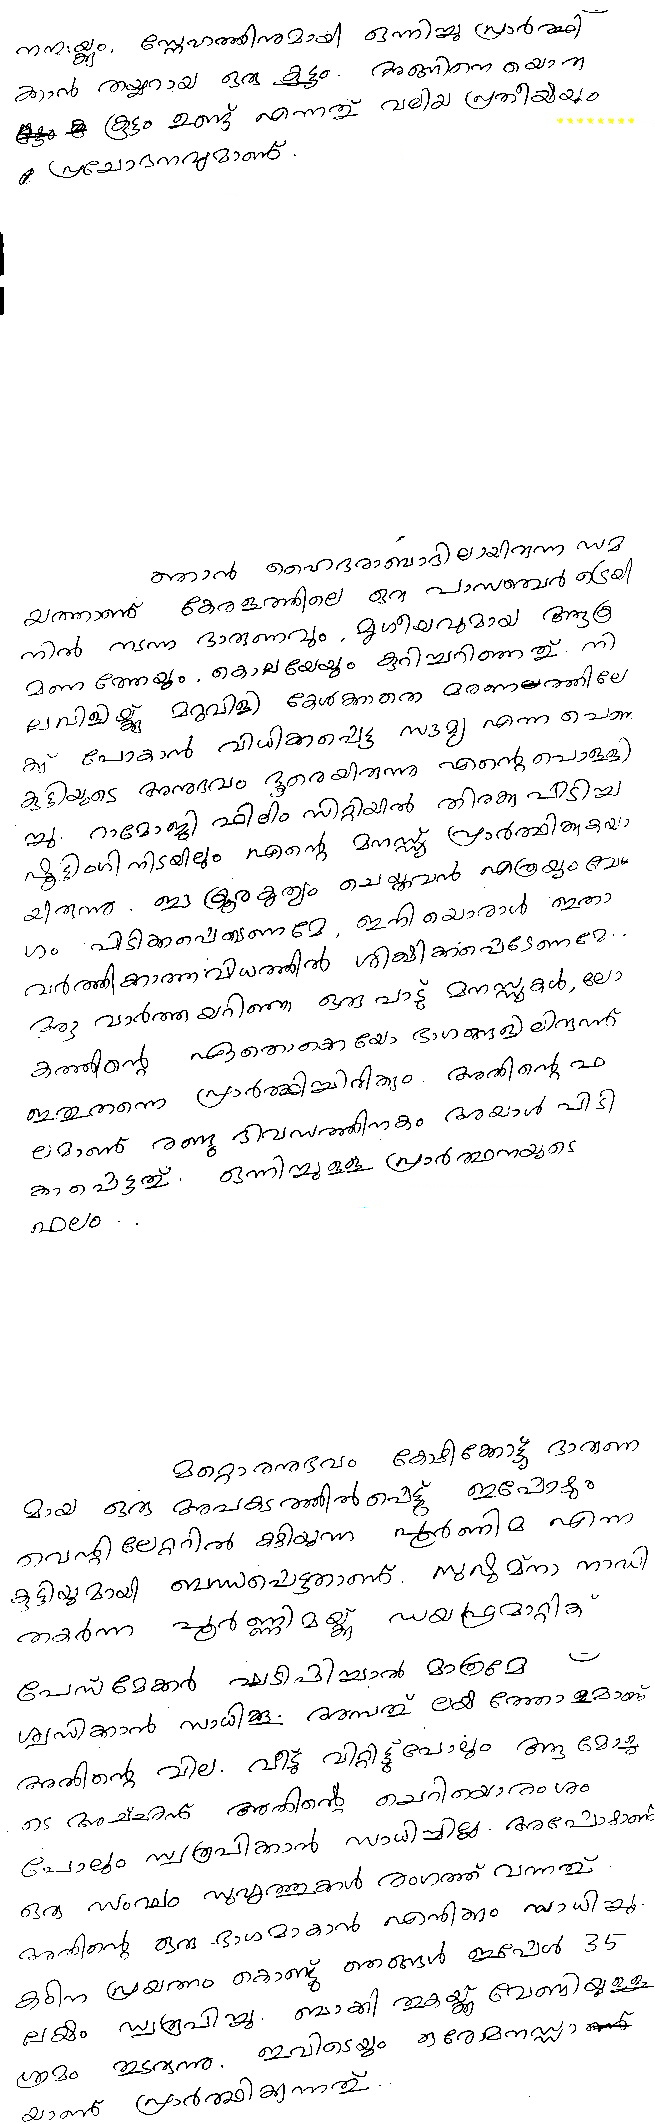 നന്മയ്ക്കും, സ്നേഹത്തിനുമായി ഒന്നിച്ചു പ്രാർത്ഥി
ക്കാൻ തയ്യറായ ഒരു കൂട്ടം. അങ്ങിനെ യൊരു
കൂട്ടം ഉണ്ട് എന്നത് വലിയ പ്രതീക്ഷയും
പ്രചോദനവുമാണ്.
ഞാൻ ഹൈദരാബാദിലായിരുന്ന സമ
യത്താണ് കേരളത്തിലെ ഒരു പാസഞ്ചർ ട്രെയി
നിൽ നടന്ന ദാരുണവും, മൃഗീയവുമായ ആക്ര
മണത്തേയും, കൊലയേയും കുറിച്ചറിഞ്ഞത്. നി
ലവിളിയ്ക്ക് മറുവിളി കേൾക്കാതെ മരണത്തിലേ
ക്ക് പോകാൻ വിധിക്കപ്പെട്ട സൗമ്യ എന്ന പെൺ
കുട്ടിയുടെ അനുഭവം ദൂരെയിരുന്നു എന്റെ പൊള്ളി
ച്ചു. റാമോജി ഫിലിം സിറ്റിയിൽ തിരക്കു പിടിച്ച
ഷൂട്ടിംഗിനിടയിലും എന്റെ മനസ്സ് പ്രാർത്ഥിക്കുകയാ
യിരുന്നു. ഈ ക്രൂരകൃത്യം ചെയ്തവൻ എത്രയും വേ
ഗം പിടിക്കപ്പെടണമേ, ഇനിയൊരാൾ ഇതാ
വർത്തിക്കാത്തവിധത്തിൽ ശിക്ഷിക്കപ്പെടേണമേ..
ആ വാർത്തയറിഞ്ഞ ഒരു പാട് മനസ്സുകൾ, ലോ
കത്തിന്റെ ഏതൊക്കെയോ ഭാഗങ്ങളിലിരുന്ന്
ഇതുതന്നെ പ്രാർത്ഥിച്ചിരിക്കും. അതിന്റെ ഫ
ലമാണ് രണ്ടു ദിവസത്തിനകം അയാൾ പിടി
ക്കപ്പെട്ടത്. ഒന്നിച്ചുള്ള പ്രാർത്ഥനയുടെ
ഫലം..
മറ്റൊരനുഭവം കോഴിക്കോട്ട് ദാരുണ
മായ ഒരു അപകടത്തിൽപ്പെട്ട് ഇപ്പോഴും
വെന്റിലേറ്ററിൽ കഴിയുന്ന പൂർണിമ എന്ന
കുട്ടിയുമായി ബന്ധപ്പെട്ടതാണ്. സുഷുമ്നാ നാഡി
തകർന്ന പൂർണ്ണിമയ്ക്ക് ഡയഫ്രമാറ്റിക്
പേസ്മേക്കർ ഘടിപ്പിച്ചാൽ മാത്രമേ
ശ്വസിക്കാൻ സാധിക്കൂ. അമ്പത് ലക്ഷത്തോളമാണ്
അതിന്റെ വില. വീട് വിറ്റിട്ട്പോലും ആ മോളു
ടെ അച്ഛന് അതിന്റെ ചെറിയൊരംശം
പോലും സ്വരൂപിക്കാൻ സാധിച്ചില്ല. അപ്പോഴാണ്
ഒരു സംഘം സുഹൃത്തുക്കൾ രംഗത്ത് വന്നത്.
അതിന്റെ ഒരു ഭാഗമാകാൻ എനിക്കും സാധിച്ചു.
കഠിന പ്രയത്നം കൊണ്ട് ഞങ്ങൾ ഇപ്പോൾ 35
ലക്ഷം സ്വരൂപിച്ചു. ബാക്കി തുകയ്ക്ക് വേണ്ടിയുള്ള
ശ്രമം തുടരുന്നു. ഇവിടെയും ഒരേമനസ്സാ
യാണ് പ്രാർത്ഥിക്കുന്നത്..